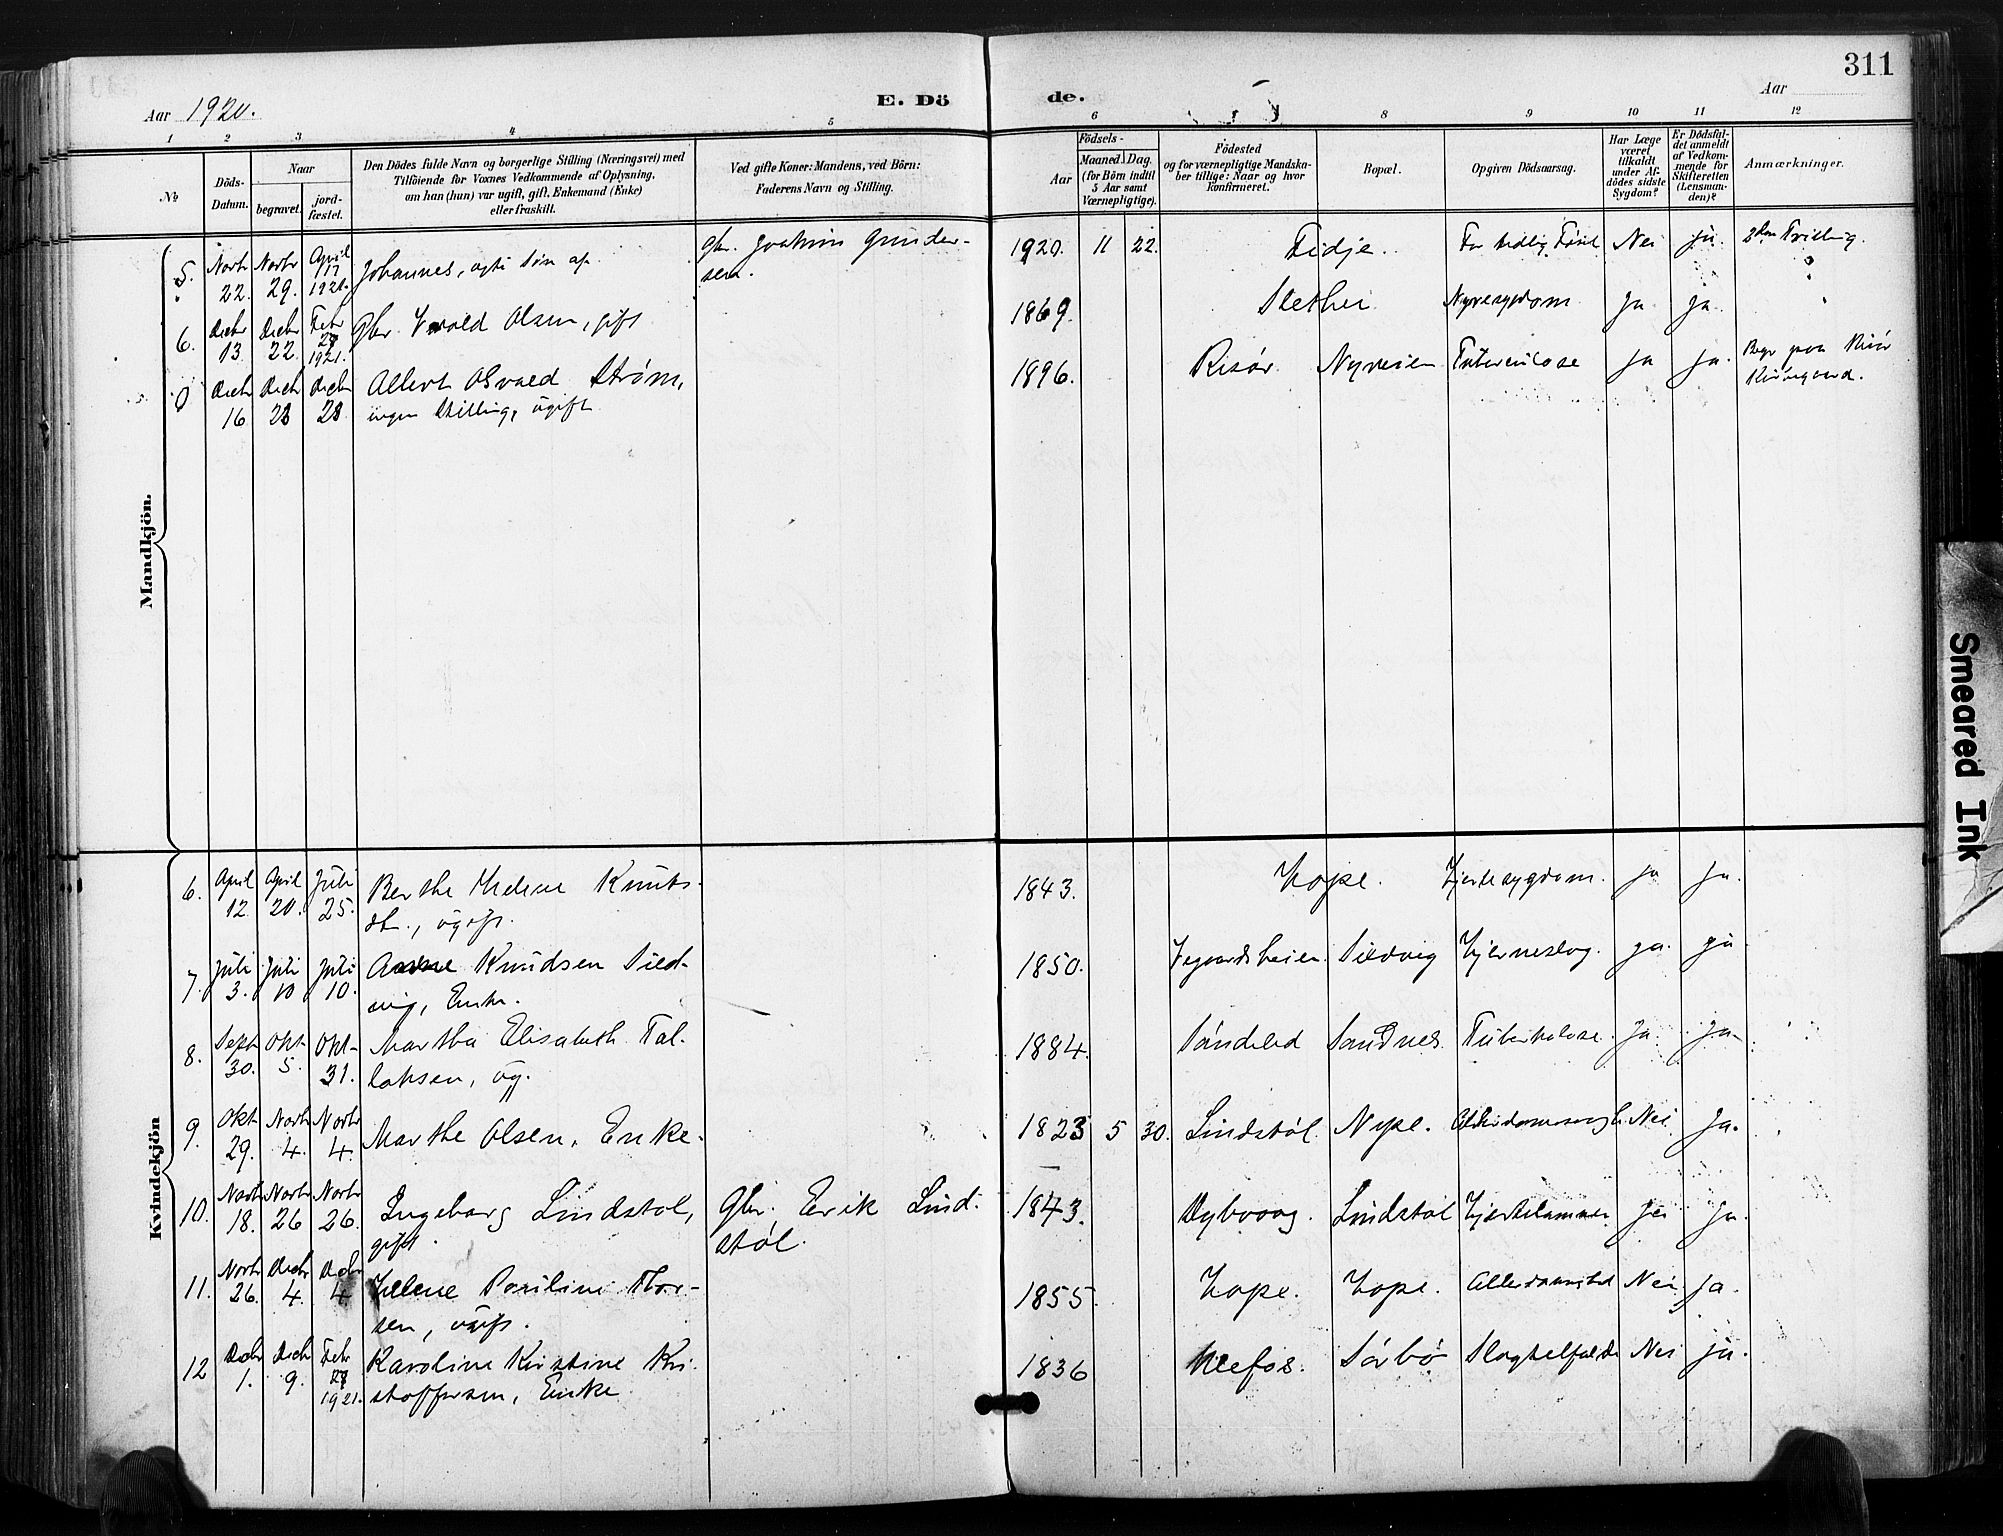 311
Aar 1920.
E. Dö
de.
Aar
1 2 3 4 5 6 8 9 10 11 12
No
Döds-
Datum.
Naar
begravet.
jord-
fæstet.
Den Dödes fulde Navn og borgerlige Stilling (Næringsvei) med
Tilföiende for Voxnes Vedkommende af Oplysning,
om han (hun) var ugift, gift, Enkemand (Enke)
eller fraskilt.
Ved gifte Koner: Mandens, ved Börn:
Faderens Navn og Stilling.
Födsels-
Aar
Maaned. Dag.
(for Börn indtil
5 Aar samt
Værnepligtige).
Födested
og for værnepligtige Mandska-
ber tillige: Naar og hvor
konfirmeret.
Bopæl.
Opgiven Dödsaarsag.
Har Læge
været
tilkaldt
under Af-
dödes sidste
Sygdom?
Er Dödsfal-
det anmeldt
af Vedkom-
mende for
Skifteretten
(Lensman-
den)?
Anmærkninger.
Mandkjön.
5. Novbr 22. Novbr 29. April 17 1921. Johannes, ægte søn af Gbr. Joakim Gunder-
sen. 1920. 11 22. Fidje. For tidlig Født Nei ja. 2den Tvilling.
6. Decbr 13. Decbr 22. Febr 1921. Gbr. Olsen, gift 1869. Slethei Nyresygdom Ja ja.
0 Decbr 16 Decbr 28 Decbr 28 Albert Osvald Strøm,
ingen Stilling, ugift 1896. Risør Nyveien Tuberculose ja ja. Begr paa Risør
Kirkegaard.
Kvindekjön
6. April 12. April 20. Juli 25. Berthe Helene Knuts-
dtr., ugift. 1843. Hope. Hjertesygdom. ja ja.
7. Juli 3. Juli 10 Juli 10. Anne Knudsen Sild-
vig, Enke. 1850. Vegaardsheien Sildvig Hjerneslag. ja. ja
8. Sept 30. Okt 5. Okt 31. Martha Elisabeth Tal-
laksen, ug. 1884. Søndeled Sandnes Tuberkulose. Ja. ja
9. Okt 29. Novbr 4. Novbr 4. Marthe Olsen, Enke. 1823 5 30. Lindstøl. Nype. Nei Ja.
10. Novbr 18. Novbr 26 Novbr 26. Ingeborg Lindstøl,
gift. Gbr. Erik Lind-
støl. 1843. Dybvaag. Lindstøl Hjertelammelse Ja.
11. Novbr 26. Decbr 4. Decbr 4 Helene Pauline Thor-
sen, ugift. 1855. Hope. Hope. Nei. Ja.
12 Decbr 1. Decbr 9. Febr 1921. Karoline Kristine Kri-
stoffersen, Enke 1836 Ulefos. Sørbø Slagtilfælde Nei ja.
Smeared Ink